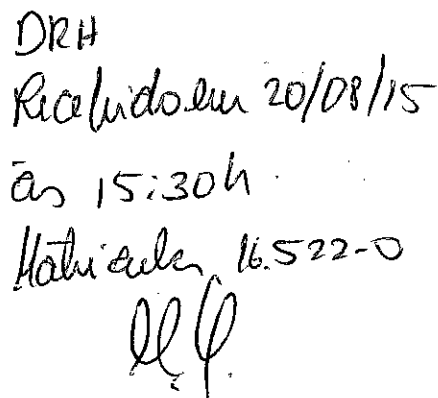 DRH
Recebido em 20/08/15
às 15:30h.
Matrícula 16.522-0